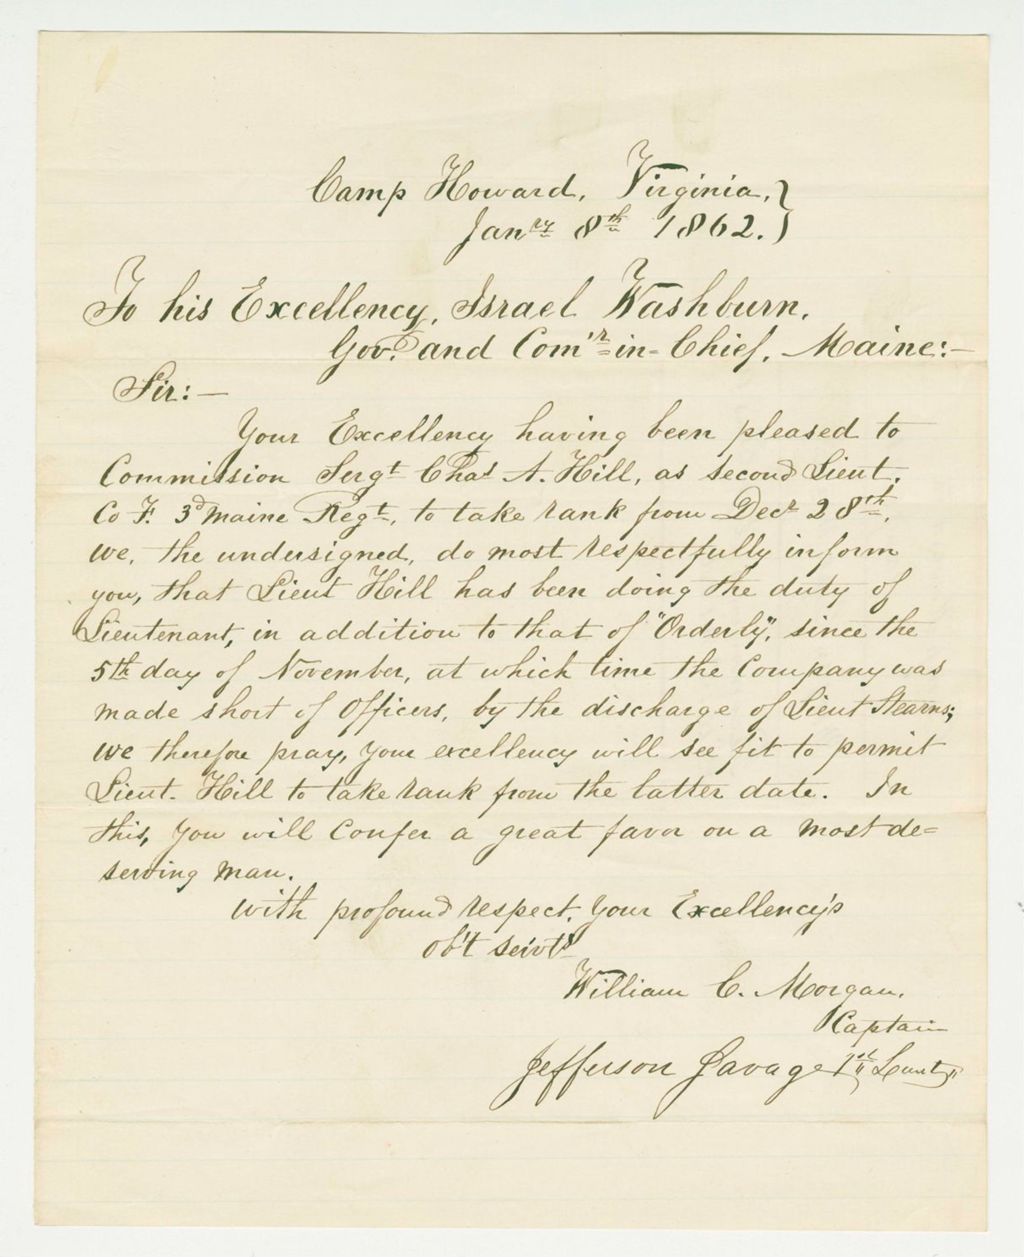 Camp Howard, Virginia,}
Janry 8th 1862.}
To his Excellency, Israel Washburn,
Gov. and Com'r-in-Chief, Maine:—
Sir:—
Your Excellency having been pleased to
Commission Sergt Chas A. Hill, as second Lieut,
Co F. 3d Maine Regt, to take rank from Decr 28th,
we, the undersigned, do most respectfully inform
you, that Lieut Hill has been doing the duty of
Lieutenant, in addition to that of "Orderly", since the
5th day of November, at which time the Company was
made short of Officers, by the discharge of Lieut Stearns;
we therefore pray, your excellency will see fit to permit
Lieut. Hill to take rank from the latter date. In
this, you will confer a great favor on a most de=
serving man.
With profound respect, Your Excellency's
ob't serv'ts
William C. Morgan,
Captain
Jefferson Savage 1st Leut,"